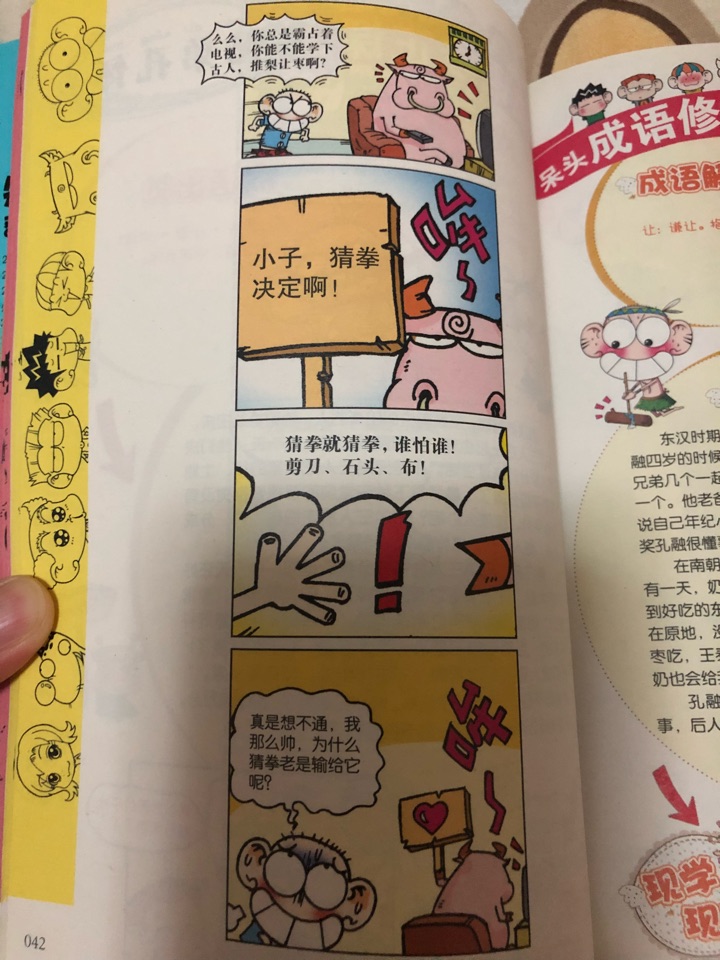 么么，你总是霸占着
电视，你能不能学下
古人，推梨让枣啊？
小子，猜拳
决定啊！
猜拳就猜拳，谁怕谁！
剪刀、石头、布！
真是想不通，我
那么帅，为什么
猜拳老是输给它
呢？
042
呆头成语修
成语解
让：谦让。
东汉时期
融四岁的时候
兄弟几个一起
一个。他老爸
说自己年纪小
奖孔融很懂
在南朝
有一天，奶
到好吃的东
在原地，没
枣吃，王泰
奶也会给
孔融
事，后人
现学
现